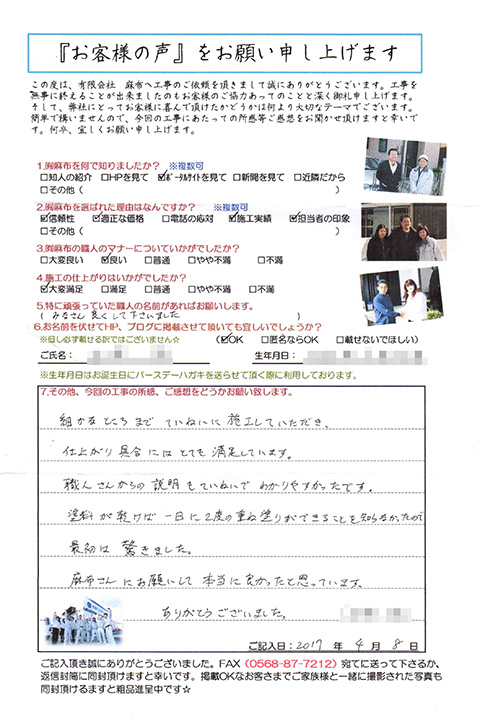 『お客様の声』をお願い申し上げます
この度は、有限会社　麻布へ工事のご依頼を頂きまして誠にありがとうございます。工事を
無事に終えることが出来ましたのもお客様のご協力あってのことと深く御礼申し上げます。
そして、弊社にとってお客様に喜んで頂けたかどうかは何より大切なテーマでございます。
簡単で構いませんので、今回の工事にあたっての所感等ご感想をお聞かせ頂けますと幸いで
す。何卒、宜しくお願い申し上げます。
1.㈲麻布を何で知りましたか？　※複数可
□知人の紹介　□HPを見て　☑ポータルサイトを見て　□新聞を見て　□近隣だから
□その他（　　　　　）
2.㈲麻布を選ばれた理由はなんですか？　※複数可
☑信頼性　☑適正な価格　□電話の応対　☑施工実績　☑担当者の印象
□その他（　　　　　）
3.㈲麻布の職人のマナーについていかがでしたか？
□大変良い　☑良い　□普通　□やや不満　□不満
4.施工の仕上がりはいかがでしたか？
☑大変満足　□満足　□普通　□やや不満　□不満
5.特に頑張っていた職人の名前があればお願いします。
（　みなさん良くして下さいました　）
6.お名前を伏せてHP、ブログに掲載させて頂いても宜しいでしょうか？
※但し必ず載せる訳ではございません☆　（☑OK　□匿名ならOK　□載せないでほしい）
ご氏名：　　　生年月日：
※生年月日はお誕生日にバースデーハガキを送らせて頂く際に利用しております。
7.その他、今回の工事の所感、ご感想をどうかお願い致します。
細かなところまでていねいに施工していただき、
仕上がり具合にはとても満足しています。
職人さんからの説明もていねいでわかりやすかったです。
塗料が乾けば一日に2度の重ね塗りができることを知らなかったので
最初は驚きました。
麻布さんにお願いして本当に良かったと思っています、
ありがとうございました。
ご記入日：2017 年 4 月 8 日
ご記入頂き誠にありがとうございました。FAX（0568-87-7212）宛てに送って下さるか、
返信封筒に同封頂けますと幸いです。掲載OKなお客さまでご家族様と一緒に撮影された写真も
同封頂けるますと粗品進呈中です☆